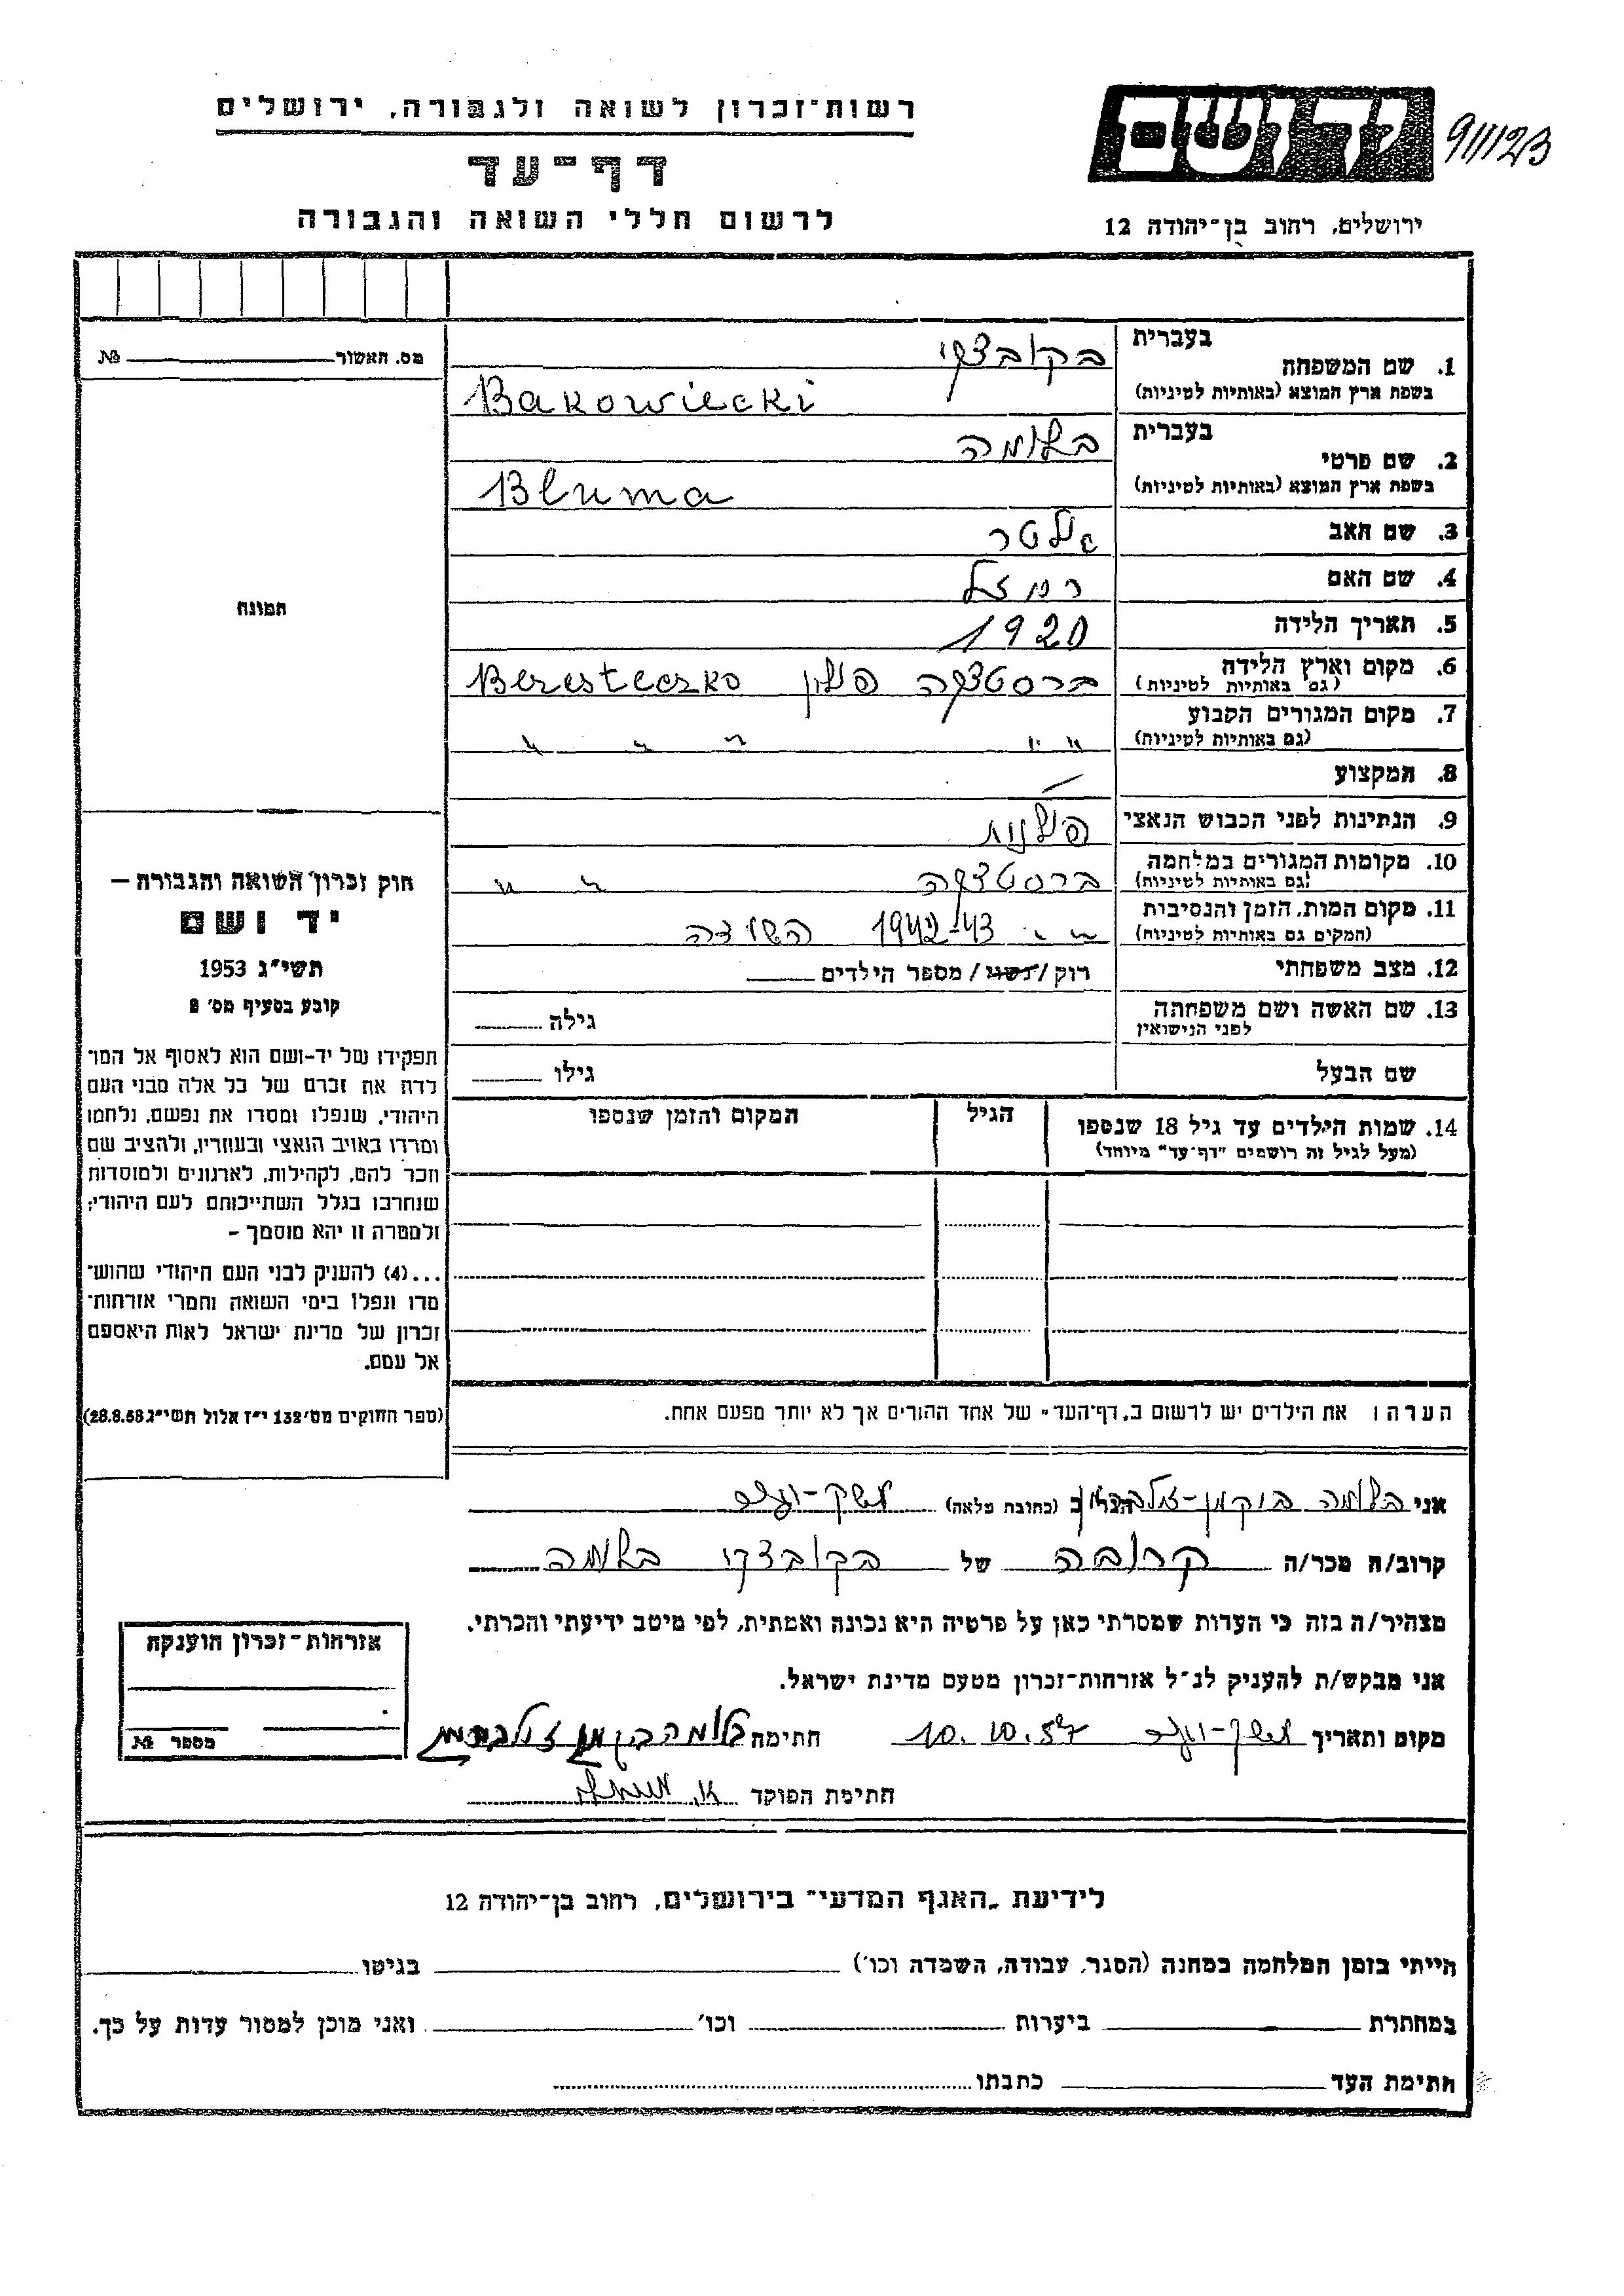 רשות־זכרון לשואה ולגבורה, ירושלים
דף־עד
לרשום חללי השואה והגבורה
יד ושם
911123
ירושלים, רחוב בן־יהודה 12
מס. האשור № 
תמונה
חוק זכרון השואה והגבורה —
יד ושם
תשי״ג 1953
קובע בסעיף מס׳ 8
תפקידו של יד-ושם הוא לאסוף אל המו
לדה את זכרם של כל אלה מבני העם
היהודי, שנפלו ומסרו את נפשם, נלחמו
ומרדו באויב הנאצי ובעוזריו, ולהציב שם
וזכר להם, לקהילות, לארגונים ולמוסדות
שנחרבו בגלל השתייכותם לעם היהודי;
ולמטרה זו יהא מוסמך –
...(4) להעניק לבני העם היהודי שהוש־
מדו ונפלו בימי השואה והמרי אזרחות־
זכרון של מדינת ישראל לאות היאספם
אל עמם.
(ספר החוקים מס׳ 132 י״ז אלול תשי״ג 28.8.53)
1. שם המשפחה בעברית בקובצקי
בשפת ארץ המוצא (באותיות לטיניות) Bakowiecki
2. שם פרטי בעברית בלומה
בשפת ארץ המוצא (באותיות לטיניות) Bluma
3. שם האב
4. שם האם
5. תאריך הלידה 1920
6. מקום וארץ הלידה (גם באותיות לטיניות) ברסטצקה פולין Beresteczko
7. מקום המגורים הקבוע (גם באותיות לטיניות) " " " " "
8. המקצוע —
9. הנתינות לפני הכבוש הנאצי פולנית
10. מקומות המגורים במלחמה (גם באותיות לטיניות) ברסטצקה " "
11. מקום המות, הזמן והנסיבות (המקום גם באותיות לטיניות) " " 1942-43 השואה
12. מצב משפחתי רוק / נשוי / מספר הילדים
13. שם האשה ושם משפחתה לפני הנישואין גילה
שם הבעל גילו
14. שמות הילדים עד גיל 18 שנספו (מעל לגיל זה רושמים "דף־עד" מיוחד) הגיל המקום והזמן שנספו
הערה: את הילדים יש לרשום ב„דף־העד" של אחד ההורים אך לא יותר מפעם אחת.
אני בלומה בוקמן- הגר/ה ב (כתובת מלאה)
קרוב/ה מכר/ה קרובה של בקובצקי בלומה
מצהיר/ה בזה כי העדות שמסרתי כאן על פרטיה היא נכונה ואמתית, לפי מיטב ידיעתי והכרתי.
אני מבקש/ת להעניק לנ״ל אזרחות־זכרון מטעם מדינת ישראל.
מקום ותאריך 10.10.57 חתימה בלומה בוקמן
חתימת הפוקד
אזרחות־זכרון הוענקה
מספר №
לידיעת „האגף המדעי" בירושלים, רחוב בן־יהודה 12
הייתי בזמן המלחמה במחנה (הסגר, עבודה, השמדה וכו׳) בגיטו
במחתרת ביערות וכו׳ ואני מוכן למסור עדות על כך.
חתימת העד כתבתו